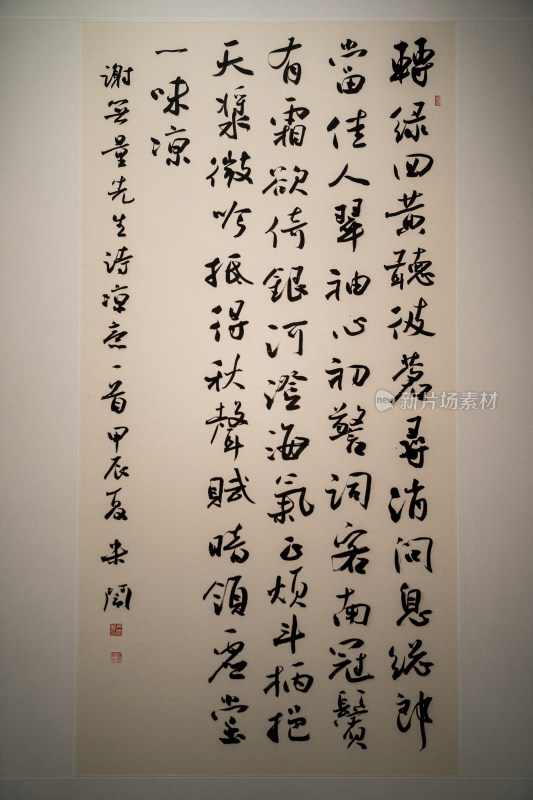 轉绿回黄聽彼蒼尋消问息總郎
當佳人翠袖心初警词客南冠鬢
有霜欲倚銀河澄海氣正煩斗柄挹
天漿微吟抵得秋聲賦暗領虛堂
一味凉
谢無量先生诗凉意一首甲辰夏
新片场素材